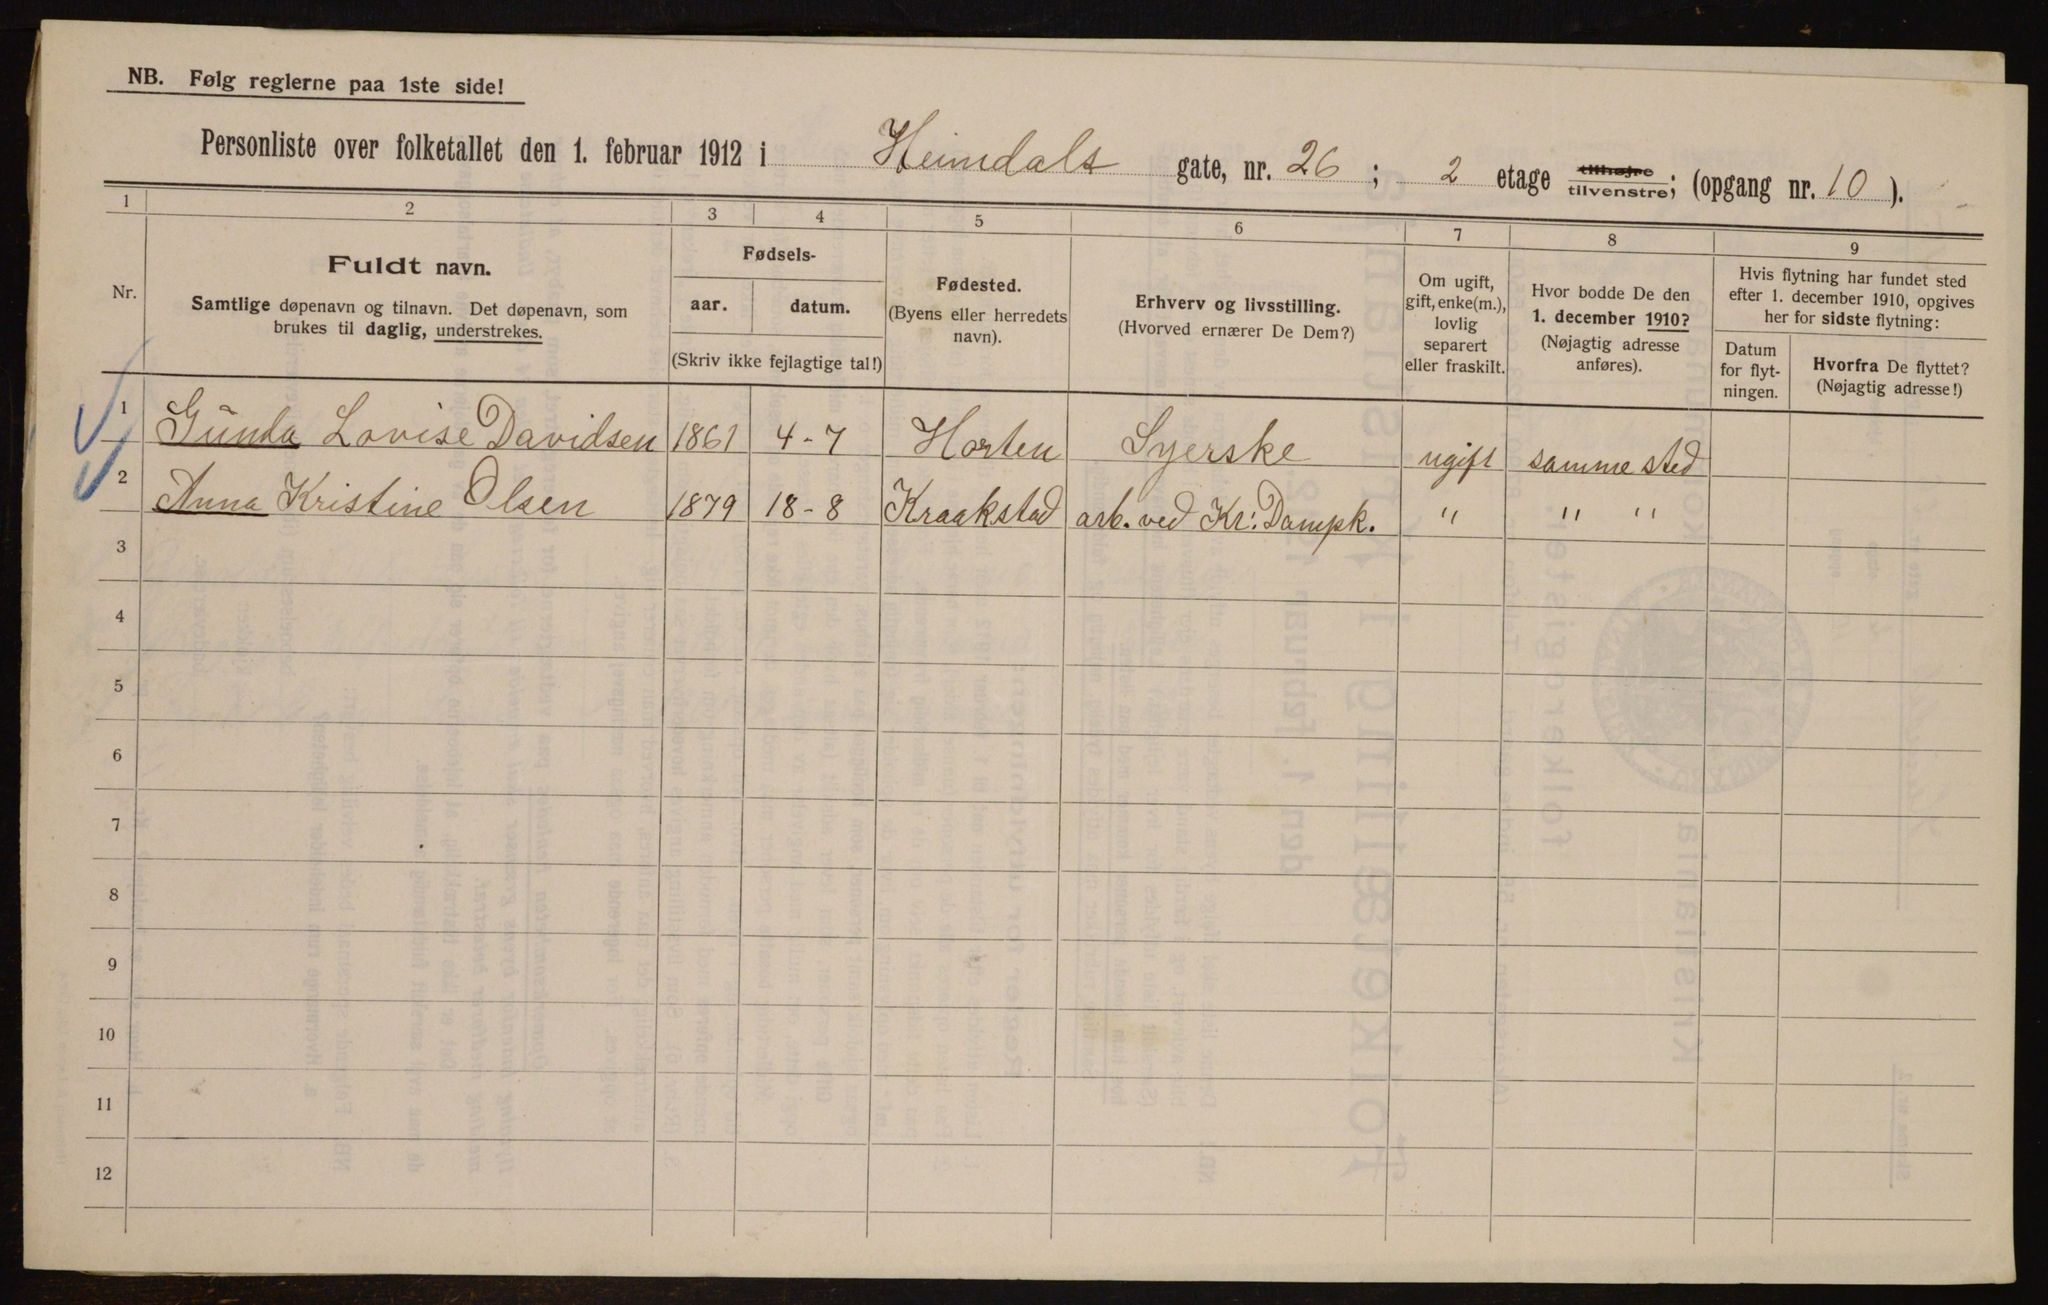 NB. Følg reglerne paa 1ste side!
Personliste over folketallet den 1. februar 1912 i Heimdals gate, nr. 26 ; 2 etage tilhøjre tilvenstre; (opgang nr. 10 ).
1 2 3 4 5 6 7 8 9
Nr.
Fuldt navn.
Samtlige døpenavn og tilnavn. Det døpenavn, som
brukes til daglig, understrekes.
Fødsels-
aar. datum.
(Skriv ikke fejlagtige tal!)
Fødested.
(Byens eller herredets
navn).
Erhverv og livsstilling.
(Hvorved ernærer De Dem?)
Om ugift,
gift, enke(m.),
lovlig
separert
eller fraskilt.
Hvor bodde De den
1. december 1910?
(Nøjagtig adresse
anføres).
Hvis flytning har fundet sted
efter 1. december 1910, opgives
her for sidste flytning:
Datum
for flyt-
ningen.
Hvorfra De flyttet?
(Nøjagtig adresse!)
1 Gunda Lovise Davidsen 1861 4-7 Horten Syerske ugift samme sted
2 Anna Kristine Olsen 1879 18-8 Kraakstad arb. ved Kr: Dampk. " " "
3
4
5
6
7
8
9
10
11
12